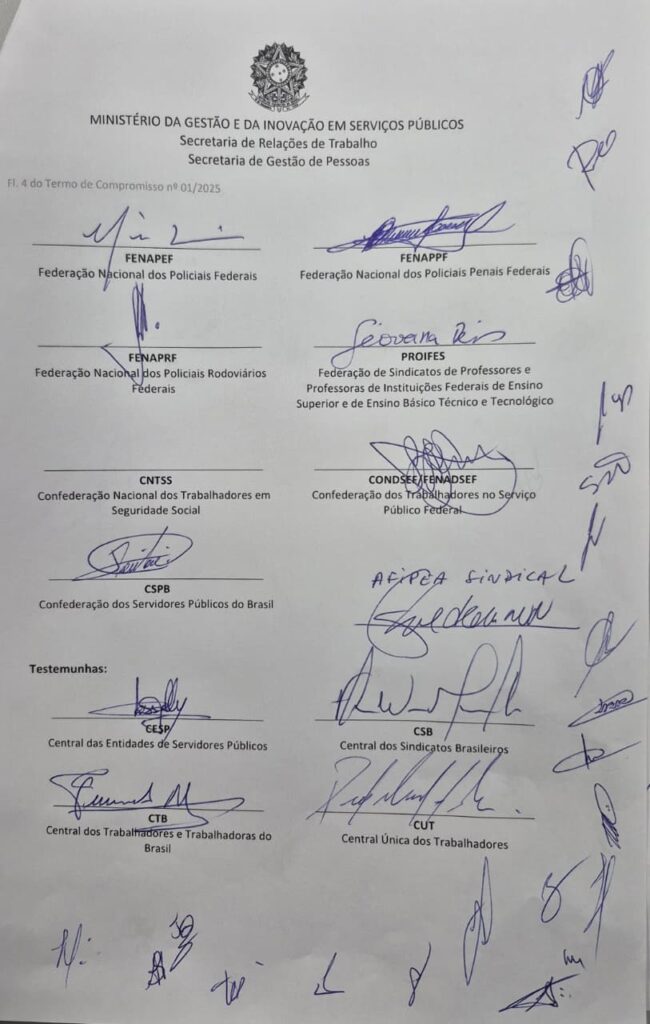 MINISTÉRIO DA GESTÃO E DA INOVAÇÃO EM SERVIÇOS PÚBLICOS
Secretaria de Relações de Trabalho
Secretaria de Gestão de Pessoas
Fl. 4 do Termo de Compromisso nº 01/2025
FENAPEF
Federação Nacional dos Policiais Federais
FENAPPF
Federação Nacional dos Policiais Penais Federais
FENAPRF
Federação Nacional dos Policiais Rodoviários
Federais
Geovana Reis
PROIFES
Federação de Sindicatos de Professores e
Professoras de Instituições Federais de Ensino
Superior e de Ensino Básico Técnico e Tecnológico
CNTSS
Confederação Nacional dos Trabalhadores em
Seguridade Social
CONDSEF/FENADSEF
Confederação dos Trabalhadores no Serviço
Público Federal
CSPB
Confederação dos Servidores Públicos do Brasil
AFIPEA SINDICAL
Testemunhas:
CESP
Central das Entidades de Servidores Públicos
CSB
Central dos Sindicatos Brasileiros
CTB
Central dos Trabalhadores e Trabalhadoras do
Brasil
CUT
Central Única dos Trabalhadores